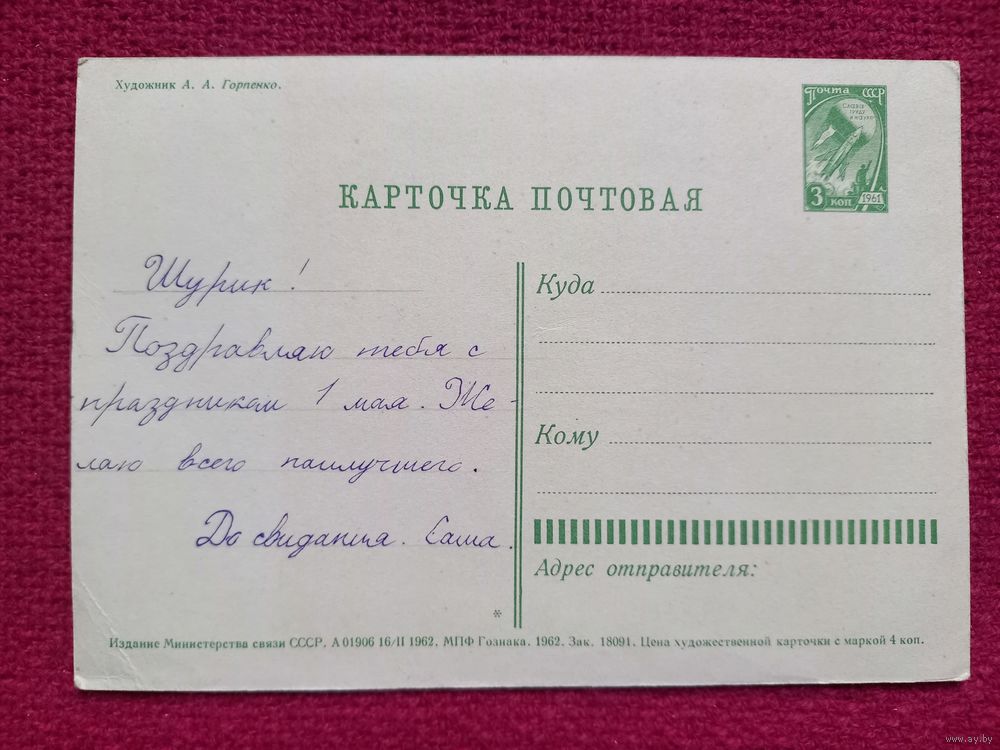 Художник А. А. Горпенко.
Почта СССР
Слава
труду
и науке
3 коп
1961
КАРТОЧКА ПОЧТОВАЯ
Шурик!
Поздравляю тебя с
праздником 1 мая. Же-
лаю всего наилучшего.
До свидания. Саша.
Куда
Кому
Адрес отправителя:
*
Издание Министерства связи СССР. А 01906 16/II 1962. МПФ Гознака. 1962. Зак. 18091. Цена художественной карточки с маркой 4 коп.
www.ay.by